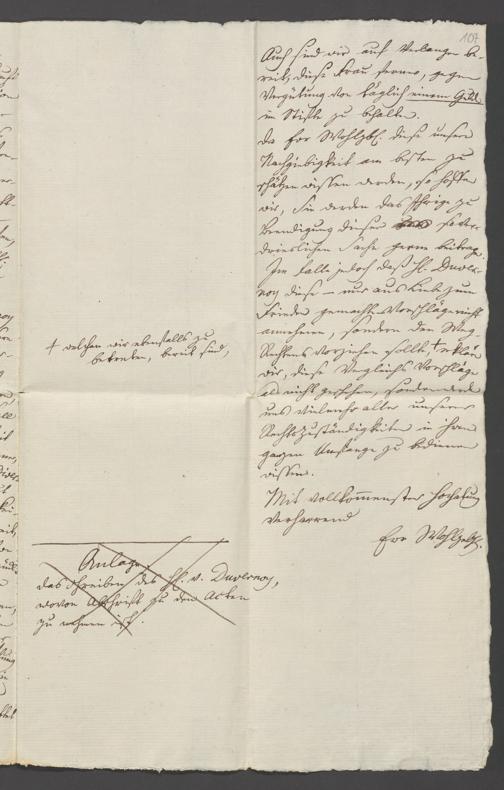 107
Auch sind wir auf Verlangen be-
reit, diese Frau ferner, gegen
Vergütung von täglich einem Guld.
im Stifte zu behalten.
Da Euer Wohlgb. diese unsere
Nachgiebigkeit am besten zu
schätzen wissen werden, so hoffen
wir, Sie werden das Ihrige zu
Beendigung dieser so ver-
drieslichen Sache gerne beitragen.
Im Falle jedoch daß H. Duver-
noy diese – nur aus Liebe zum
Frieden gemachte Vorschläge nicht
annehmen, sondern den Weg
Rechtens vorziehen sollte, + erklären
wir, diese Vergleichs Vorschläge
als nicht geschehen, sondern
uns vielmehr aller unserer
Rechtszuständigkeiten in ihrem
ganzen Umfange zu bedienen
wissen.
Mit vollkommenster Hochachtung
verharrend
Euer Wohlgeb.
+ welchen wir ebenfalls zu
betreten, bereit sind,
Anlage
das Schreiben des H. v. Duvernoy,
wovon Abschrift zu den Acten
zu nehmen ist.